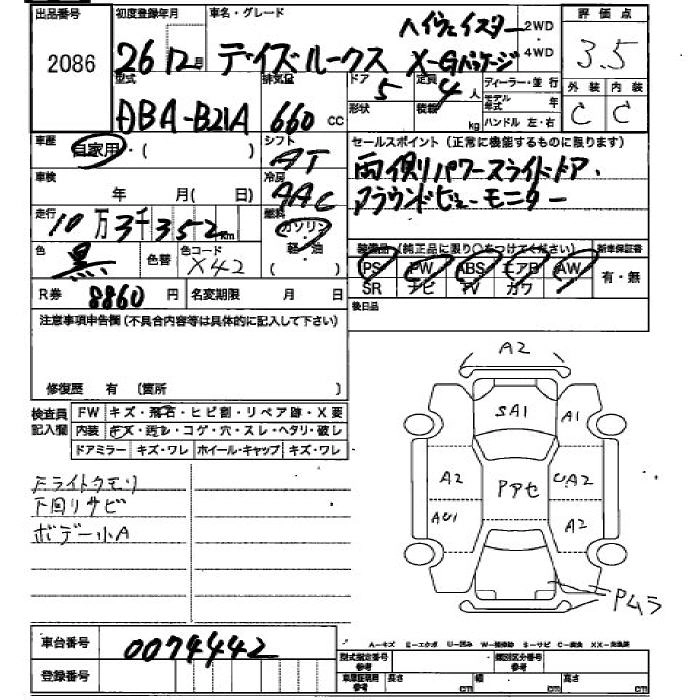 出品番号 初度登録年月 車名・グレード ハイウェイスター 2WD 評価点
2086 26 12月 デイズルークス X-Gパッケージ ・4WD 3.5
型式 排気量 ドア 定員 ディーラー・並行 外装 内装
DBA-B21A 660 CC 5 4人 モデル年式 年 C C
形状 積載 kg ハンドル 左・右
車歴 自家用・( ) シフト AT セールスポイント(正常に機能するものに限ります)
車検 年 月( 日) 冷房 AAC 両側パワースライドドア・
走行 10万3千352Km 燃料 ガソリン・軽・油 ( ) アラウンドビューモニター
色 黒 色替 色コード X42 装備品(純正品に限り○をつけてください) 新車保証書
PS PW ABS エアB AW 有・無
SR ナビ TV カワ
R券 8860円 名変期限 月 日 後日品
注意事項申告欄(不具合内容等は具体的に記入して下さい)
修復歴 有 (箇所 )
検査員記入欄 FW キズ・飛石・ヒビ割・リペア跡・X要
内装 キズ・汚レ・コゲ・穴・スレ・ヘタリ・破レ
ドアミラー キズ・ワレ ホイール・キャップ キズ・ワレ
A2
SA1 A1
A2 Pアセ UA2
AU1 A2
Pムラ
F ライトクモリ
下回りサビ
ボデー小A
車台番号 0074442
A-キズ E-エクボ U-凹み W-補修跡 S-サビ C-腐食 XX-交換済
登録番号 型式指定番号参考 類別区分番号参考
車庫証明用参考 長さ cm 幅 cm 高さ cm